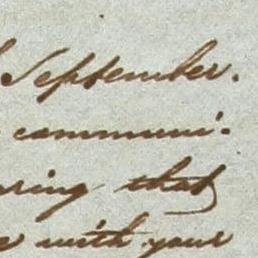 September.
communi-
ring that
with your